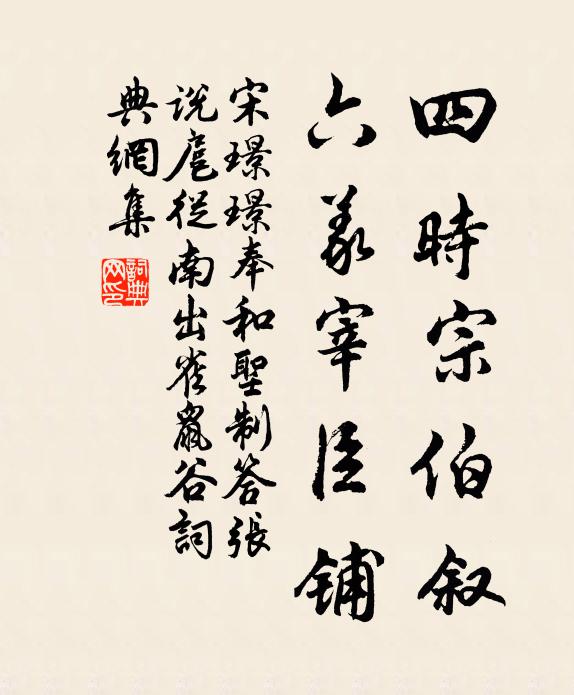 四時宗伯叙
六義宰臣铺
宋璟璟奉和聖制答張
说扈從南出雀鼠谷詞
典網集
詞典網印